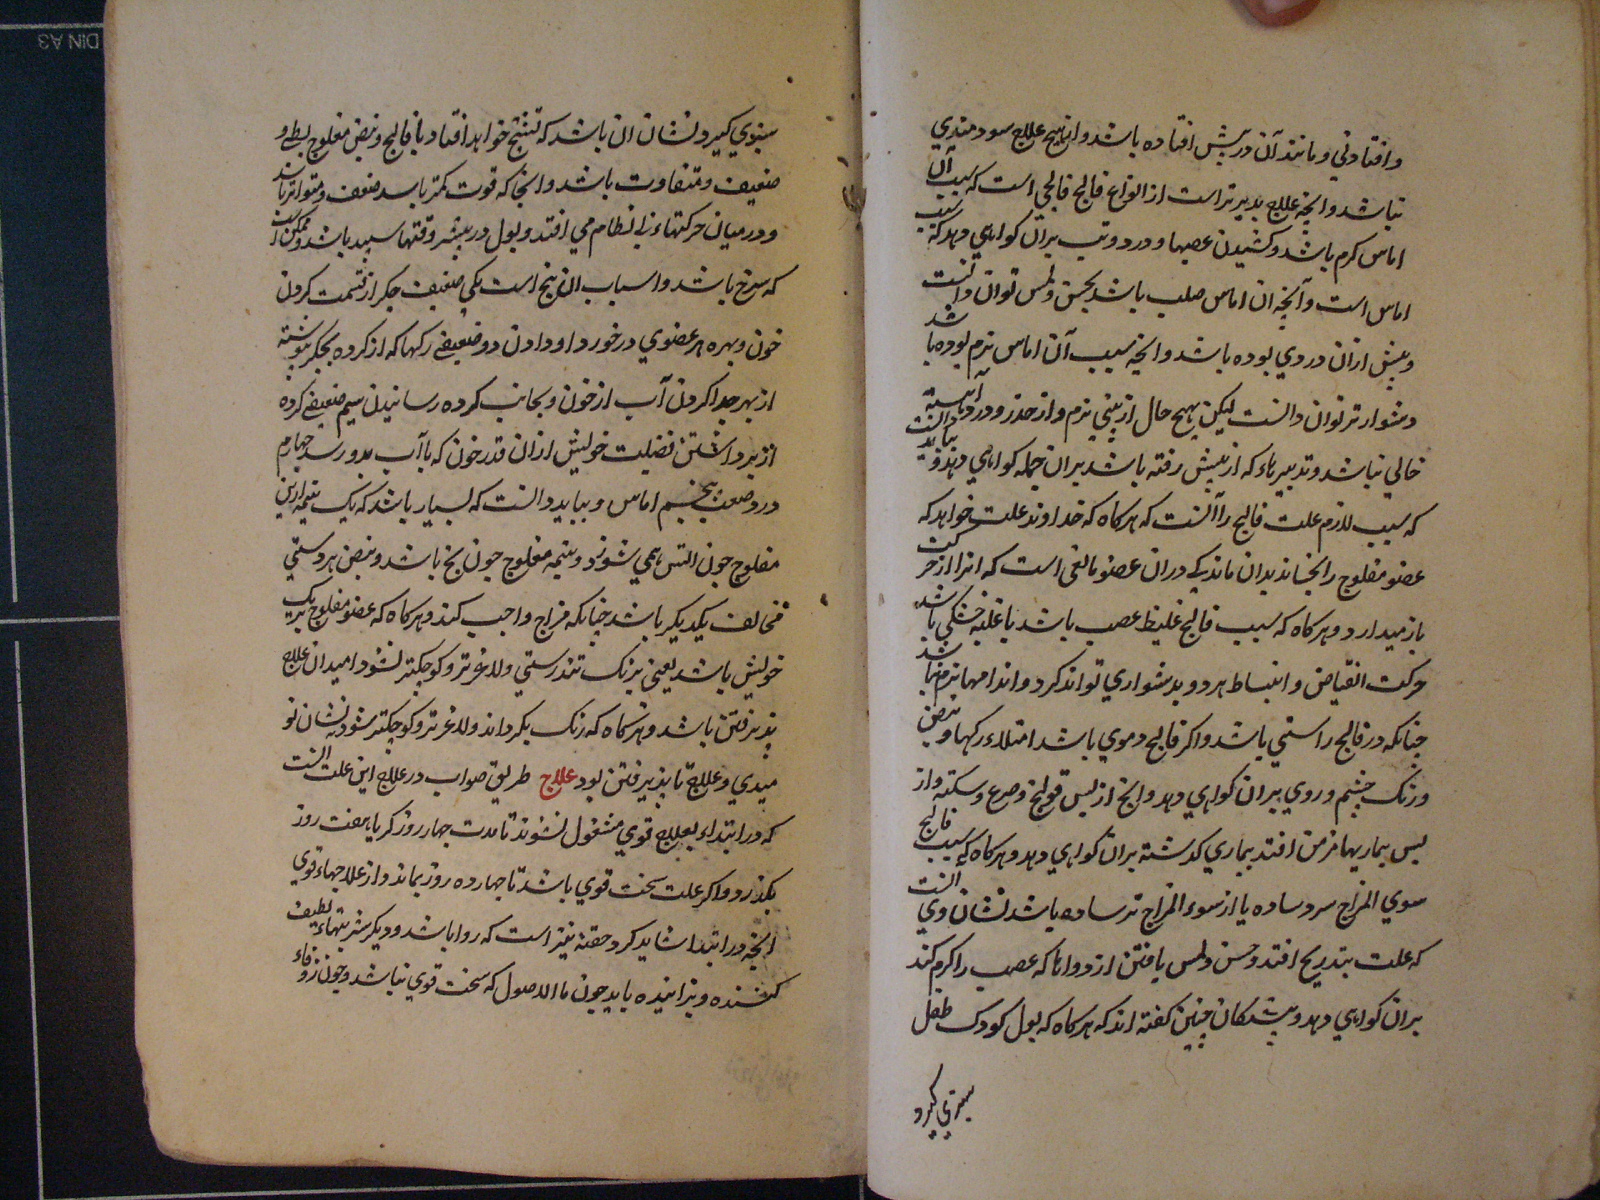 وافتادنی و مانند آن در پیش افتاده باشد و از هیچ علاج سودمندی
نباشد و آنچه علاج پذیرتر است از انواع فالج فالجی است که سبب آن
اماس کرم باشد و کشیدن عصبها و درد و تب بران کواهی دهد که سبب
اماس است و آنچه ان اماس صلب باشد بحس و لمس توان دانست
و پیش ازان دردی بوده باشد و انچه سبب آن اماس نرم بوده باشد
دشوارتر توان دانست لیکن بهیچ حال از تبی نرم و از خدر و درد آهسته
خالی نباشد و تدبیرهاء که از پیش رفته باشد بران جمله کواهی دهد و بباید دانست
که سبب لازم علت فالج را آنست که هر کاه که خداوند علت خواهد که
عضو مفلوج را بجنباند بدان ماند که دران عضو مانعی است که انرا از حرکت
باز میدارد و هر کاه که سبب فالج غلیظ عصب باشد یا غلبه خشکی باشد
حرکت انقباض و انبساط هر دو بدشواری تواند کرد و اندامها نرم نباشد
چنانکه در فالج راستی باشد و اکر فالج دموی باشد امتلاء رکها و نبض
و رنک چشم و روی بران کواهی دهد و انچ از پس قولنج و صرع و سکته و از
پس بیماریها مزمن افتد بیماری کذشته بران کواهی دهد و هر کاه که سبب فالج
سوی المزاج سرد ساده یا از سوء المزاج تر ساده باشد نشان وی آنست
که علت بتدریج افتد و حس و لمس یافتن از دواها که عصب را کرم کند
بران کواهی دهد و پزشکان چنین کفته اند که هر کاه که بول کودک طفل
سبزی کیرد
سبزی کیرد نشان ان باشد که تشنج خواهد افتاد یا فالج و نبض مفلوج بطی و
ضعیف و متفاوت باشد و انجا که قوت کمتر باسد ضعف و متواتر باشد
و در میان حرکتهاء بی نظام می افتد و بول در بیشتر وقتها سپید باشد و ممکن است
که سرخ باشد و اسباب ان پنج است یکی ضعیفی جکر از قسمت کردن
خون و بهره هر عضوی درخورد او دادن دو ضعیفی رکها که از کرده بجکر پیوسته
از بهر جدا کردن آب از خون و بجانب کرده رسانیدن سیم ضعیفی کرده
از برداشتن فضیلت خویش ازان قدر خون که با آب بدو رسد چهارم
درد صعب پنجم اماس و بباید دانست که بسیار باشد که یک نیمه ازین
مفلوج چون اتش همی شود و نیمه مفلوج چون یخ باشد و نبض هر دستی
مخالف یکدیکر باشد چنانکه مزاج واجب کند و هر کاه که عضو مفلوج برنک
خویش باشد یعنی برنک تندرستی و لاغرتر و کوچکتر نشود امید ان علاج
پذیرفتن باشد و هر کاه که رنک بکرداند و لاغرتر و کوچکتر شود نشان نو
میدی و علاج ناپذیرفتن بود علاج طریق صواب در علاج این علت آنست
که در ابتداء بعلاج قوی مشغول نشوند تا مدت چهار روز کر یا هفت روز
بکذرد و اکر علت سخت قوی باشد تا چهارده روز بماند و از علاجهاء قوی
انچه در ابتدا شاید کرد حقنه تیز است که روا باشد و دیکر شربتهاء لطیف
کننده و پزاینده باید چون ماالاصول که سخت قوی نباشد و چون زوفاء